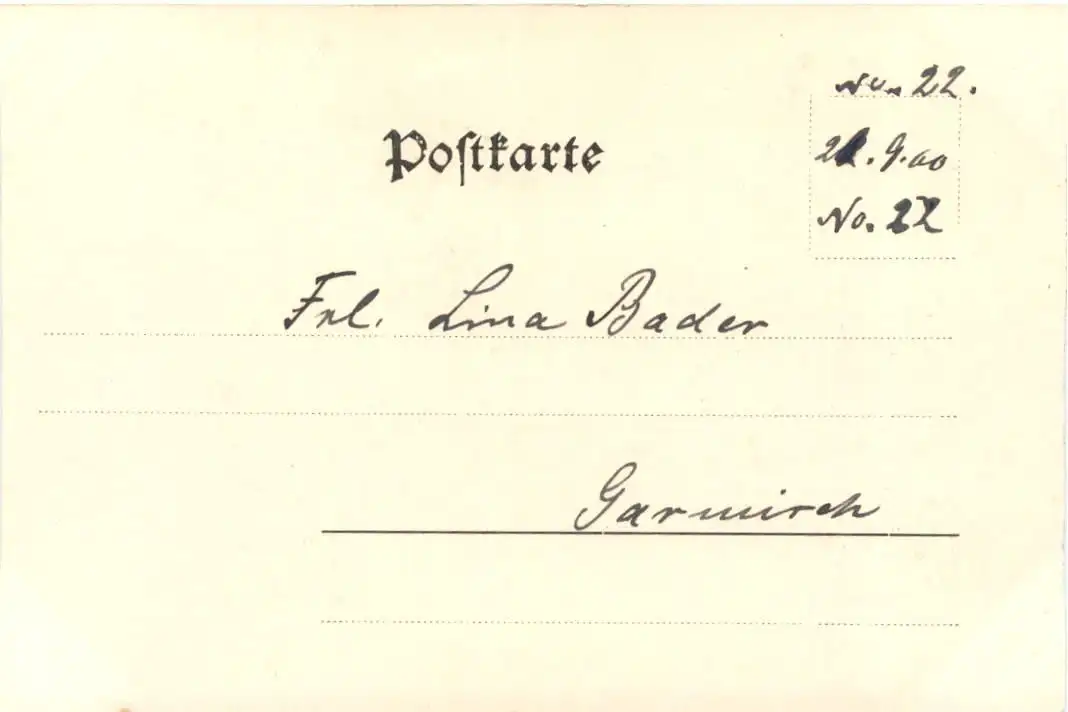 No. 22.
Postkarte
21.9.00
No. 22
Frl. Lina Bader
Garmisch